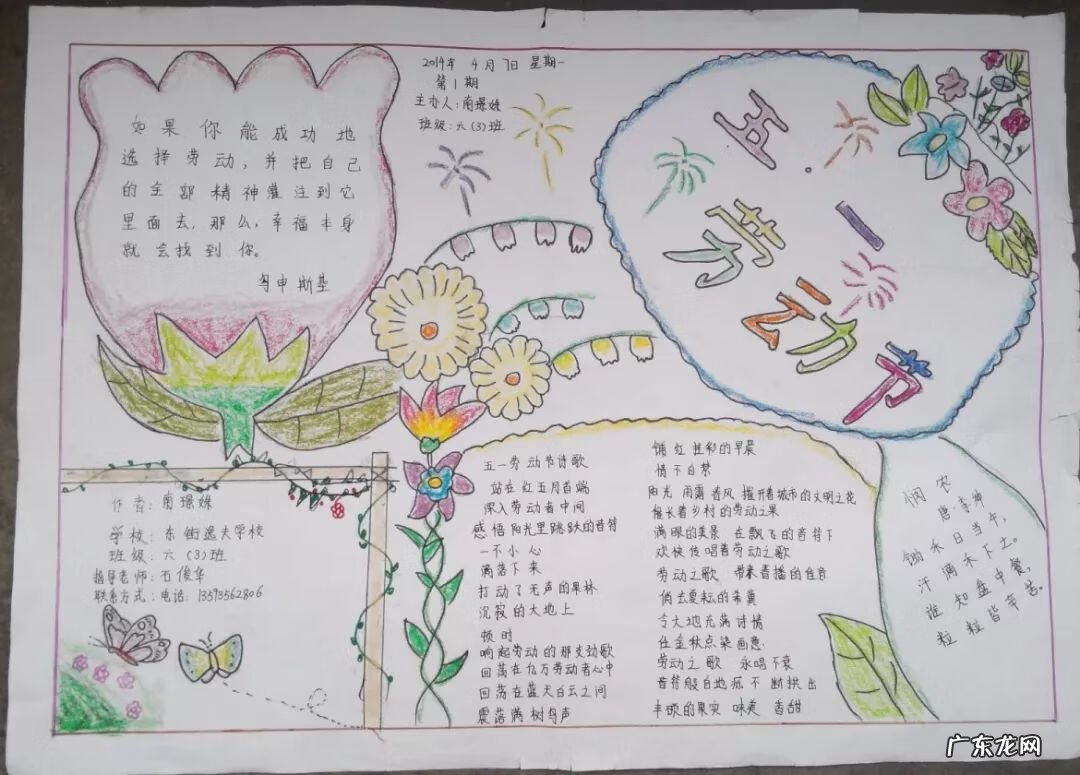 如果你能成功地
选择劳动，并把自己
的全部精神灌注到它
里面去，那么，幸福本身
就会找到你。
2014年 4月7日 星期一
第1期
主办人：南璟姝
班级：六（3）班
五·一
劳动节
作者：南璟姝
学校：东街逸夫学校
班级：六（3）班
指导老师：石俊华
联系方式：电话：13593562806
五一劳动节诗歌
站在红五月首端
深入劳动者中间
感悟阳光里跳跃的音符
一不小心
滴落下来
打动了无声的果林
沉寂的大地上
顿时
响起劳动的那支劲歌
回荡在亿万劳动者心中
回荡在蓝天白云之间
震落满树鸟声
铺红挂彩的早晨
情不自禁
阳光 雨露 春风 握开着城市的文明之花
催长着乡村的劳动之果
满眼的美景 在飘飞的音符下
欢快传唱着劳动之歌
劳动之歌 带来春播的佳音
俏去夏耘的希冀
令大地充满诗情
任金秋点染画意.
劳动之歌 永唱不衰
音符般自地 不断拱出
丰硕的果实 味美 香甜
悯农
唐·李绅
锄禾日当午，
汗滴禾下土。
谁知盘中餐，
粒粒皆辛苦。
广东龙网